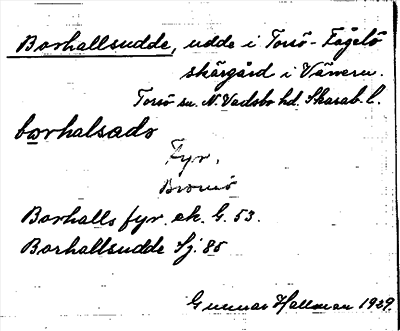 Borhallsudde, udde i Torsö-Fågelö
skärgård i Vänern.
Torsö sn. N. Vadsbo hd. Skarab. l.
borhalsadə
Fyr.
Bromö
Borhalls fyr. ek. G. 53.
Borhallsudde Sj. 85
Gunnar Hallman 1929.